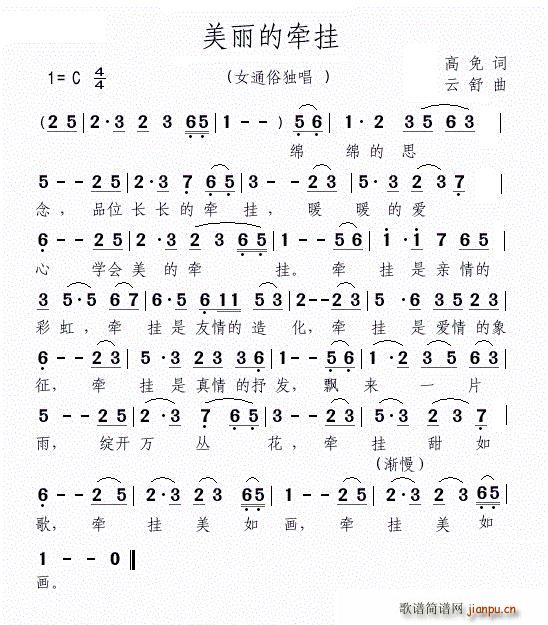 美丽的牵挂
1= C 4/4
(女通俗独唱 )
高 免 词
云 舒 曲
( 2 5 | 2·3 2 3 6 5 | 1 - - ) 5 6 | 1·2 3 5 6 3 |
绵 绵 的 思
5 - - 2 5 | 2·3 7 6 5 | 3 - - 2 3 | 5·3 2 3 7 |
念 , 品位 长 长 的 牵 挂 , 暖 暖 的 爱
6 - - 2 5 | 5·3 2 3 6 5 | 1 - - 5 6 | i·i 7 5 7 |
心 学会 美 的 牵 挂。 牵 挂 是 亲 情 的
3 5·5 6 7 | 6·5 6 1 1 5 3 | 2 - - 2 3 | 6 3 5 2 3 |
彩 虹 , 牵 挂 是 友情 的 造 化, 牵 挂 是 爱情 的 象
6 - - 2 3 | 5·3 2 3 3 6 | 1 - - 5 6 | 1·2 3 5 6 3 |
征, 牵 挂 是 真情 的 抒 发, 飘 来 一 片
5 - - 2 5 | 2·3 7 6 5 | 3 - - 2 3 | 5·3 2 3 7 |
雨, 绽开 万 丛 花, 牵 挂 甜 如
(渐慢)
6 - - 2 5 | 2·3 2 3 6 5 | 1 - - 2 5 | 2·3 2 3 6 5 |
歌, 牵 挂 美 如 画, 牵 挂 美 如
1 - - 0 ‖
画。
歌谱简谱网
jianpu.cn